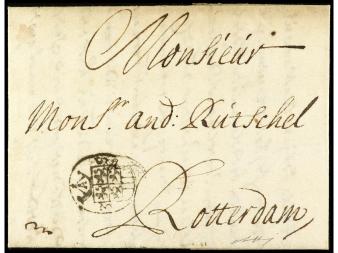 Monsieur
Mons.r and: Rütschel
Rotterdam